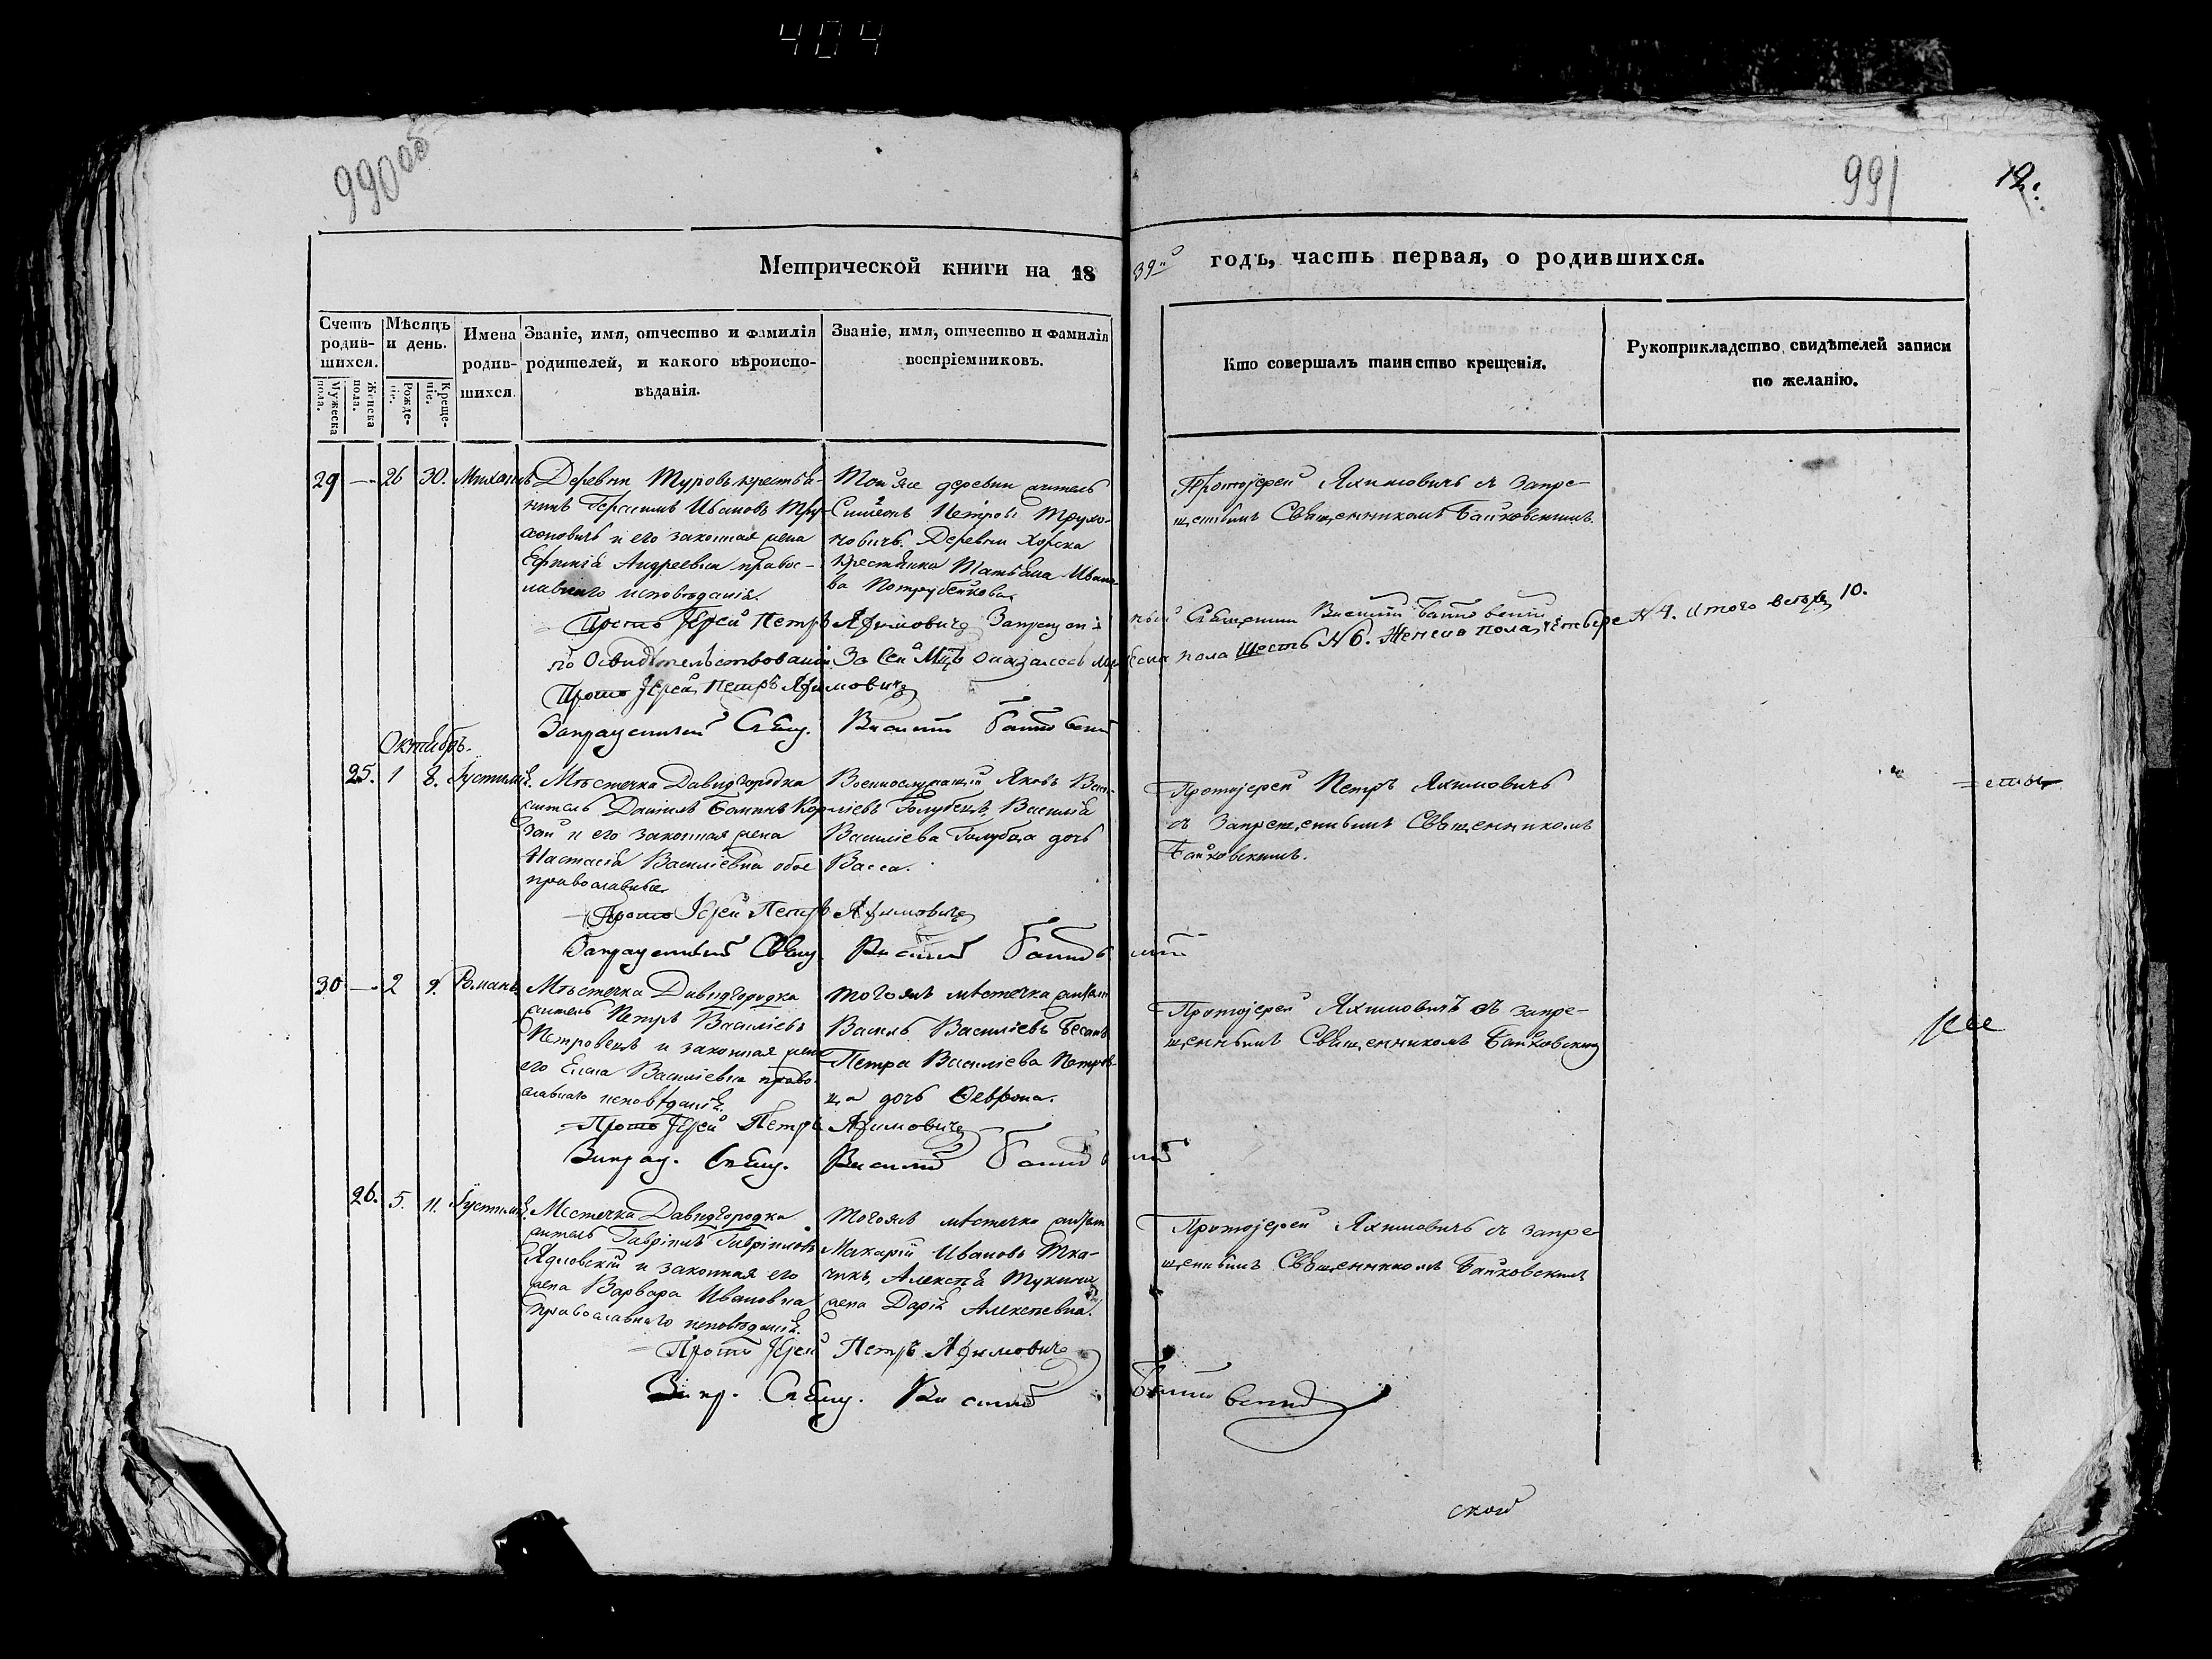 404
990 об
991
12.
Метрической книги на 1839й годъ, часть первая, о родившихся.
Счетъ родив-шихся.
Мужеска пола.
Женска пола.
Мѣсяцъ и день.
Рожде-ніе.
Креще-ніе.
Имена родив-шихся
Званіе, имя, отчество и фамилія
родителей, и какого вѣроиспо-
вѣданія.
Званіе, имя, отчество и фамилія
воспріемниковъ.
Кто совершалъ таинство крещенія.
Рукоприкладство свидѣтелей записи
по желанію.
29 — 26 30. Михаилъ
Деревни Туровъ крестья-
нинъ Герасимъ Ивановъ Тру-
хоновичъ и его законная жена
Евфимія Андреевна правос-
лавнаго исповѣданія.
Той же деревни житель
Симеонъ Петровъ Трухо-
новичъ. Деревни Хорска
крестьянка Татьяна Ивано-
ва
Протоіерей Якимовичъ съ запре-
щеннымъ Священникомъ Байковскимъ.
Прото Іерей Петръ Якимовичъ Запрещенный Священникъ Василій Байковскій
По Освидѣтельствованіи За Сей Мцъ оказалось Мужеска пола шесть N 6. Женска пола четыре N 4. Итого всего 10.
Прото Іерей Петръ Якимовичъ
Запрещенный Свящ. Василій Байковскій
Октябрь.
25. 1 8. Іустинія.
Мѣстечка Давидгородка
житель Даніилъ
и его законная жена
Настасія Василіевна обое
православные
Военнослужащій Яковъ Васи-
ліевъ Голубецъ, Василія
Василіева Голубца дочь
Васса.
Протоіерей Петръ Якимовичъ
съ Запрещеннымъ Священникомъ
Байковскимъ.
Прото Іерей Петръ Якимовичъ
Запрещенный Свящ. Василій Байковскій
30 — 2 9. Романъ
Мѣстечка Давидгородка
житель Петръ Василіевъ
Петровецъ и законная жена
его Елена Василіевна право-
славнаго исповѣданія.
Тогожъ мѣстечка житель
Василь Василіевъ Бесанъ
Петра Василіева Петров-
ца дочь Феврона.
Протоіерей Якимовичъ съ запре-
щеннымъ Священникомъ Байковскимъ
Прото Іерей Петръ Якимовичъ
Запрещ. Свящ. Василій Байковскій
26. 5. 11. Іустинія.
Местечка Давидгородка
житель Гавріилъ Гавріиловъ
Ядловскій и законная его
жена Варвара Ивановна
православнаго исповѣданія.
Тогожъ мѣстечка житель
Макарій Ивановъ Тка-
чикъ, Алексѣя
жена Дарія Алексѣевна.
Протоіерей Якимовичъ съ запре-
щеннымъ Священникомъ Байковскимъ
Прото Іерей Петръ Якимовичъ
Запр. Свящ. Василій Байковскій
ской